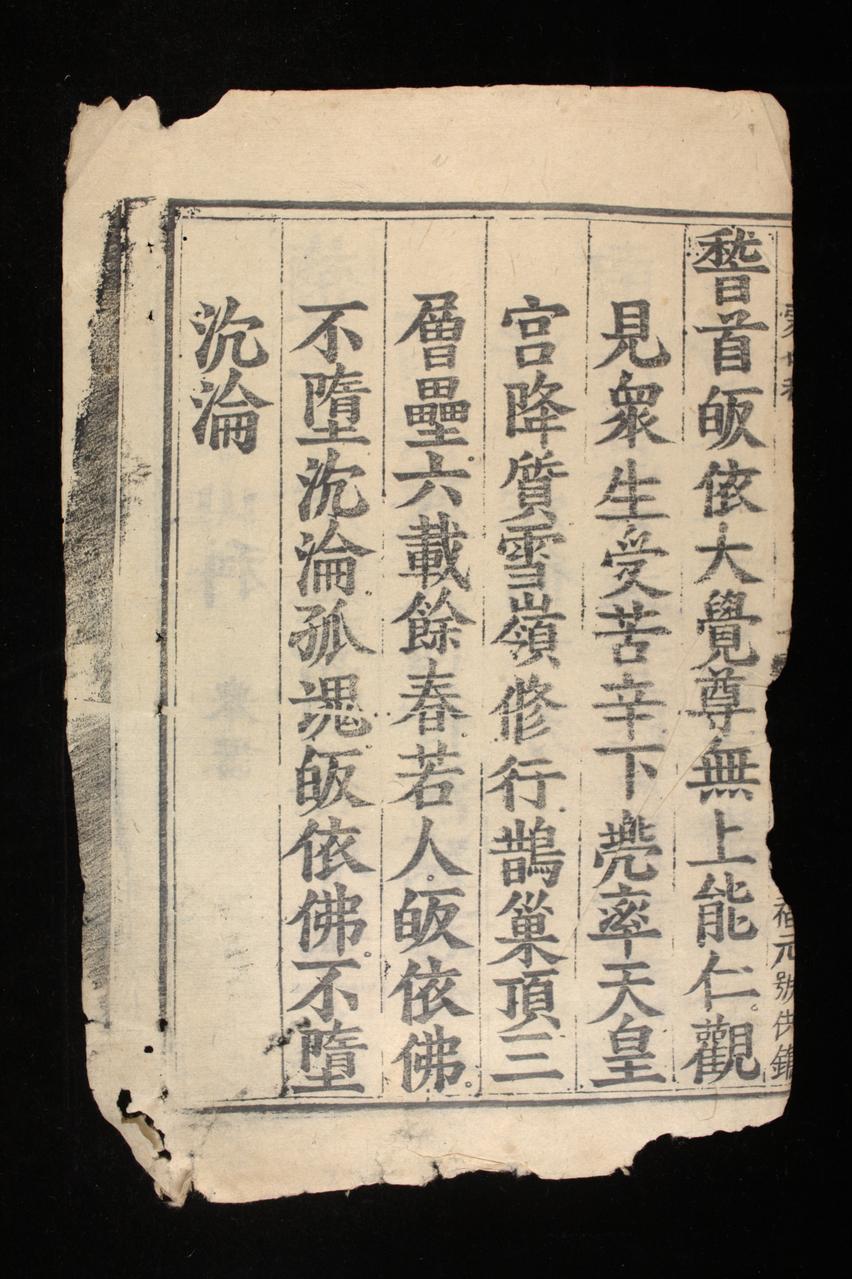 稽首皈依大覺尊無上能仁。觀
見衆生受苦辛下兠率天皇
宫降質雪嶺修行鵲巢頂三
層壘。六載餘春若人皈依佛。
不墮沉淪孤魂皈依佛。不墮
沉淪